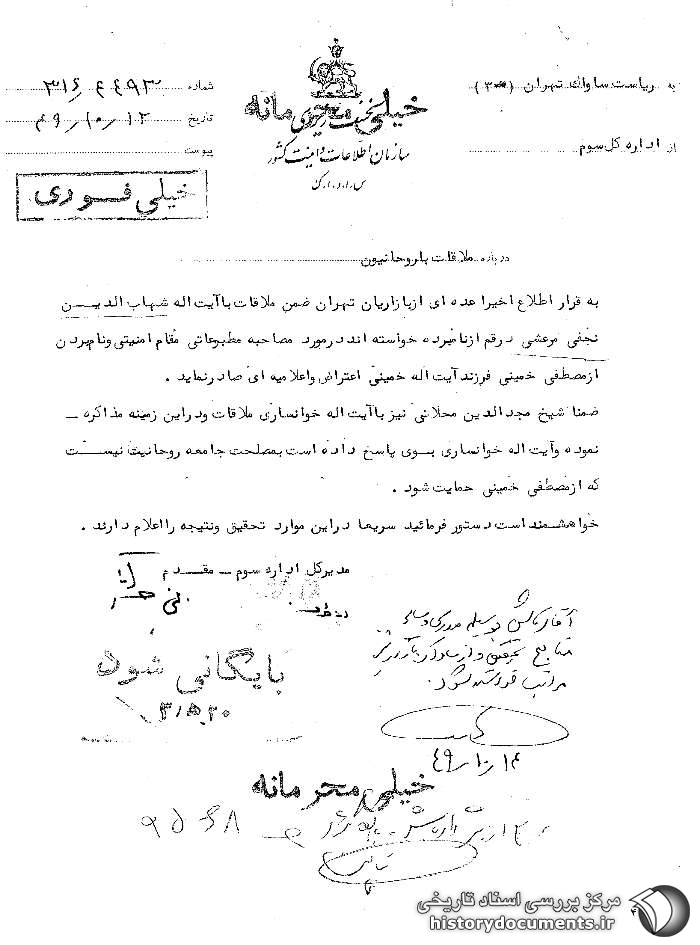 به ریاست ساواک تهران (۳۰۰)
از اداره کل سوم
خیلی محرمانه
نخست وزیری
سازمان اطلاعات و امنیت کشور
س.ا.و.ا.ک
شماره ۳۱۶/۶۴۹۳
تاریخ ۴۹/۱۰/۱۲
پیوست
خیلی فوری
درباره ملاقات با روحانیون
به قرار اطلاع اخیرا عده ای از بازاریان تهران ضمن ملاقات با آیت اله شهاب الدین
نجفی مرعشی در قم از نامبرده خواسته اند در مورد مصاحبه مطبوعاتی مقام امنیتی و نام بردن
از مصطفی خمینی فرزند آیت اله خمینی اعتراض و اعلامیه ای صادر نماید .
ضمنا شیخ مجد الدین محلاتی نیز با آیت اله خوانساری ملاقات و در این زمینه مذاکره –
نموده و آیت اله خوانساری بوی پاسخ داده است بمصلحت جامعه روحانیت نیست
که از مصطفی خمینی حمایت شود .
خواهشمند است دستور فرمائید سریعا در این موارد تحقیق و نتیجه را اعلام دارند .
مدیر کل اداره سوم – مقدم
منابع تحقیق و از ساواک
مراتب
۴۹/۱۰/۱۴
بایگانی شود
خیلی محرمانه
مرکز بررسی اسناد تاریخی
historydocuments.ir